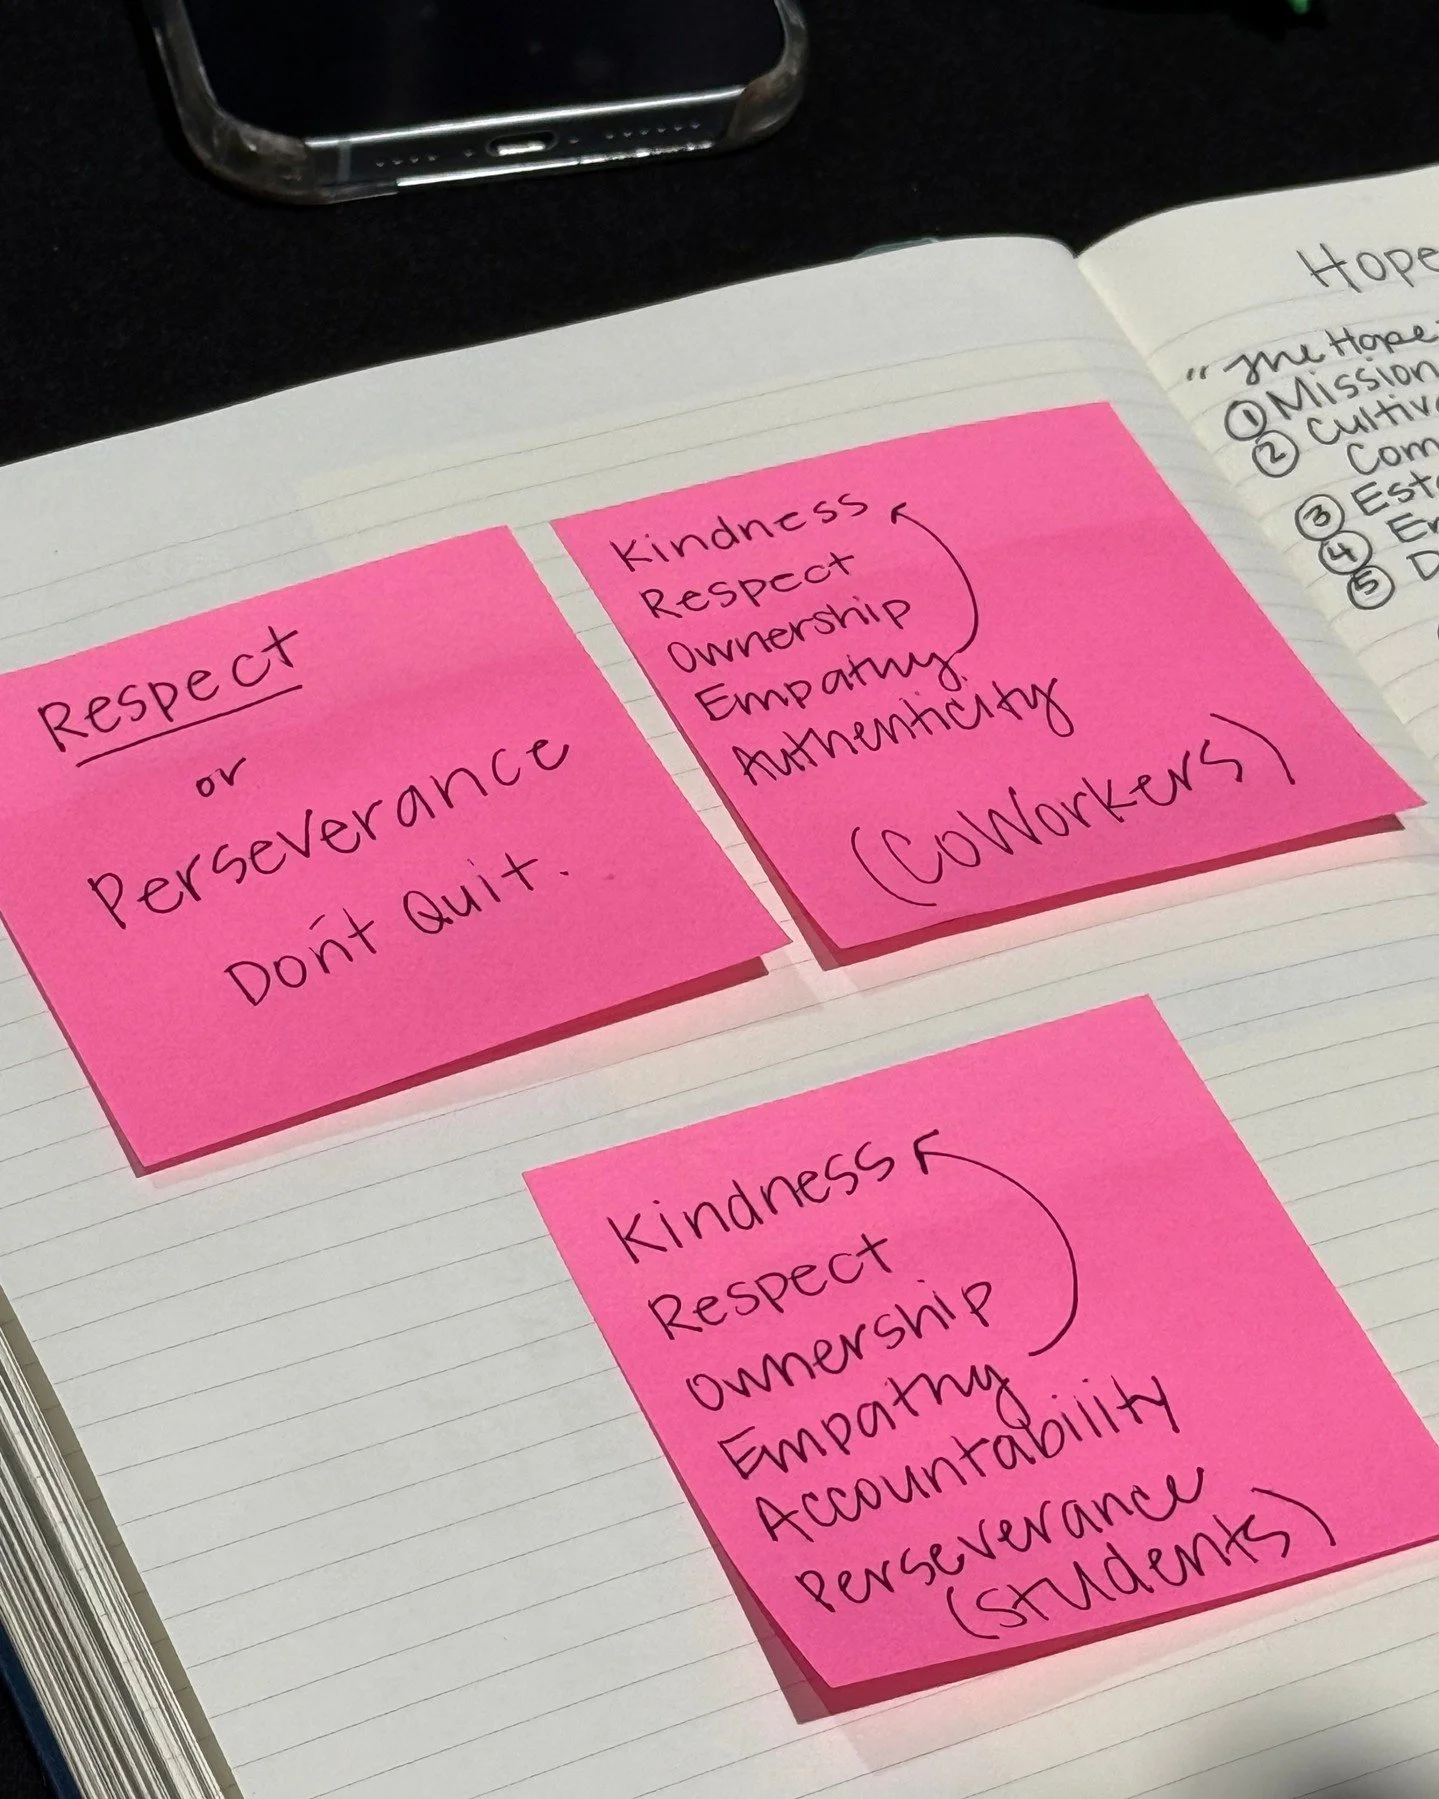 Respect
or
Perseverance
Don't Quit.
Kindness
Respect
Ownership
Empathy
Authenticity
(CoWorkers)
Kindness
Respect
Ownership
Empathy
Accountability
Perseverance
(students)
Hope
"The Hope
① Mission
②
Com
③ Est
④ En
⑤ D